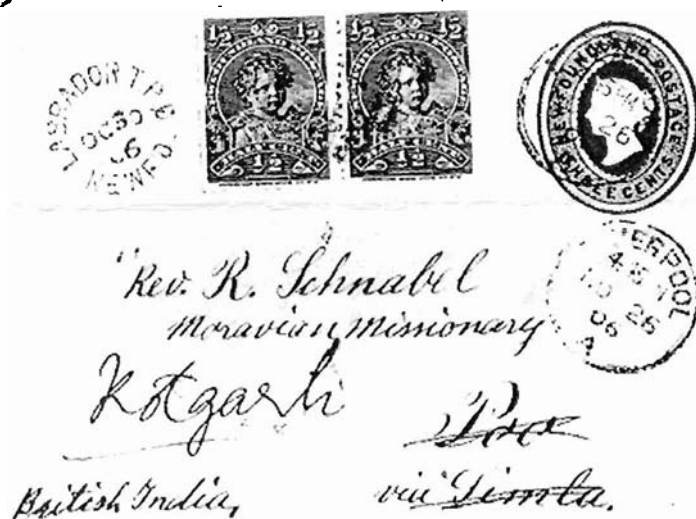 LABRADOR T.P.O.
OC 30
06
NEWF'D
1/2 1/2
1/2
1/2 1/2
1/2
NEWFOUNDLAND POSTAGE
THREE CENTS
26
LIVERPOOL
4.15 A
NO 26
06
"Rev. R. Schnabel
Moravian Missionary
Kotgarh
Poo
British India,
via Simla.